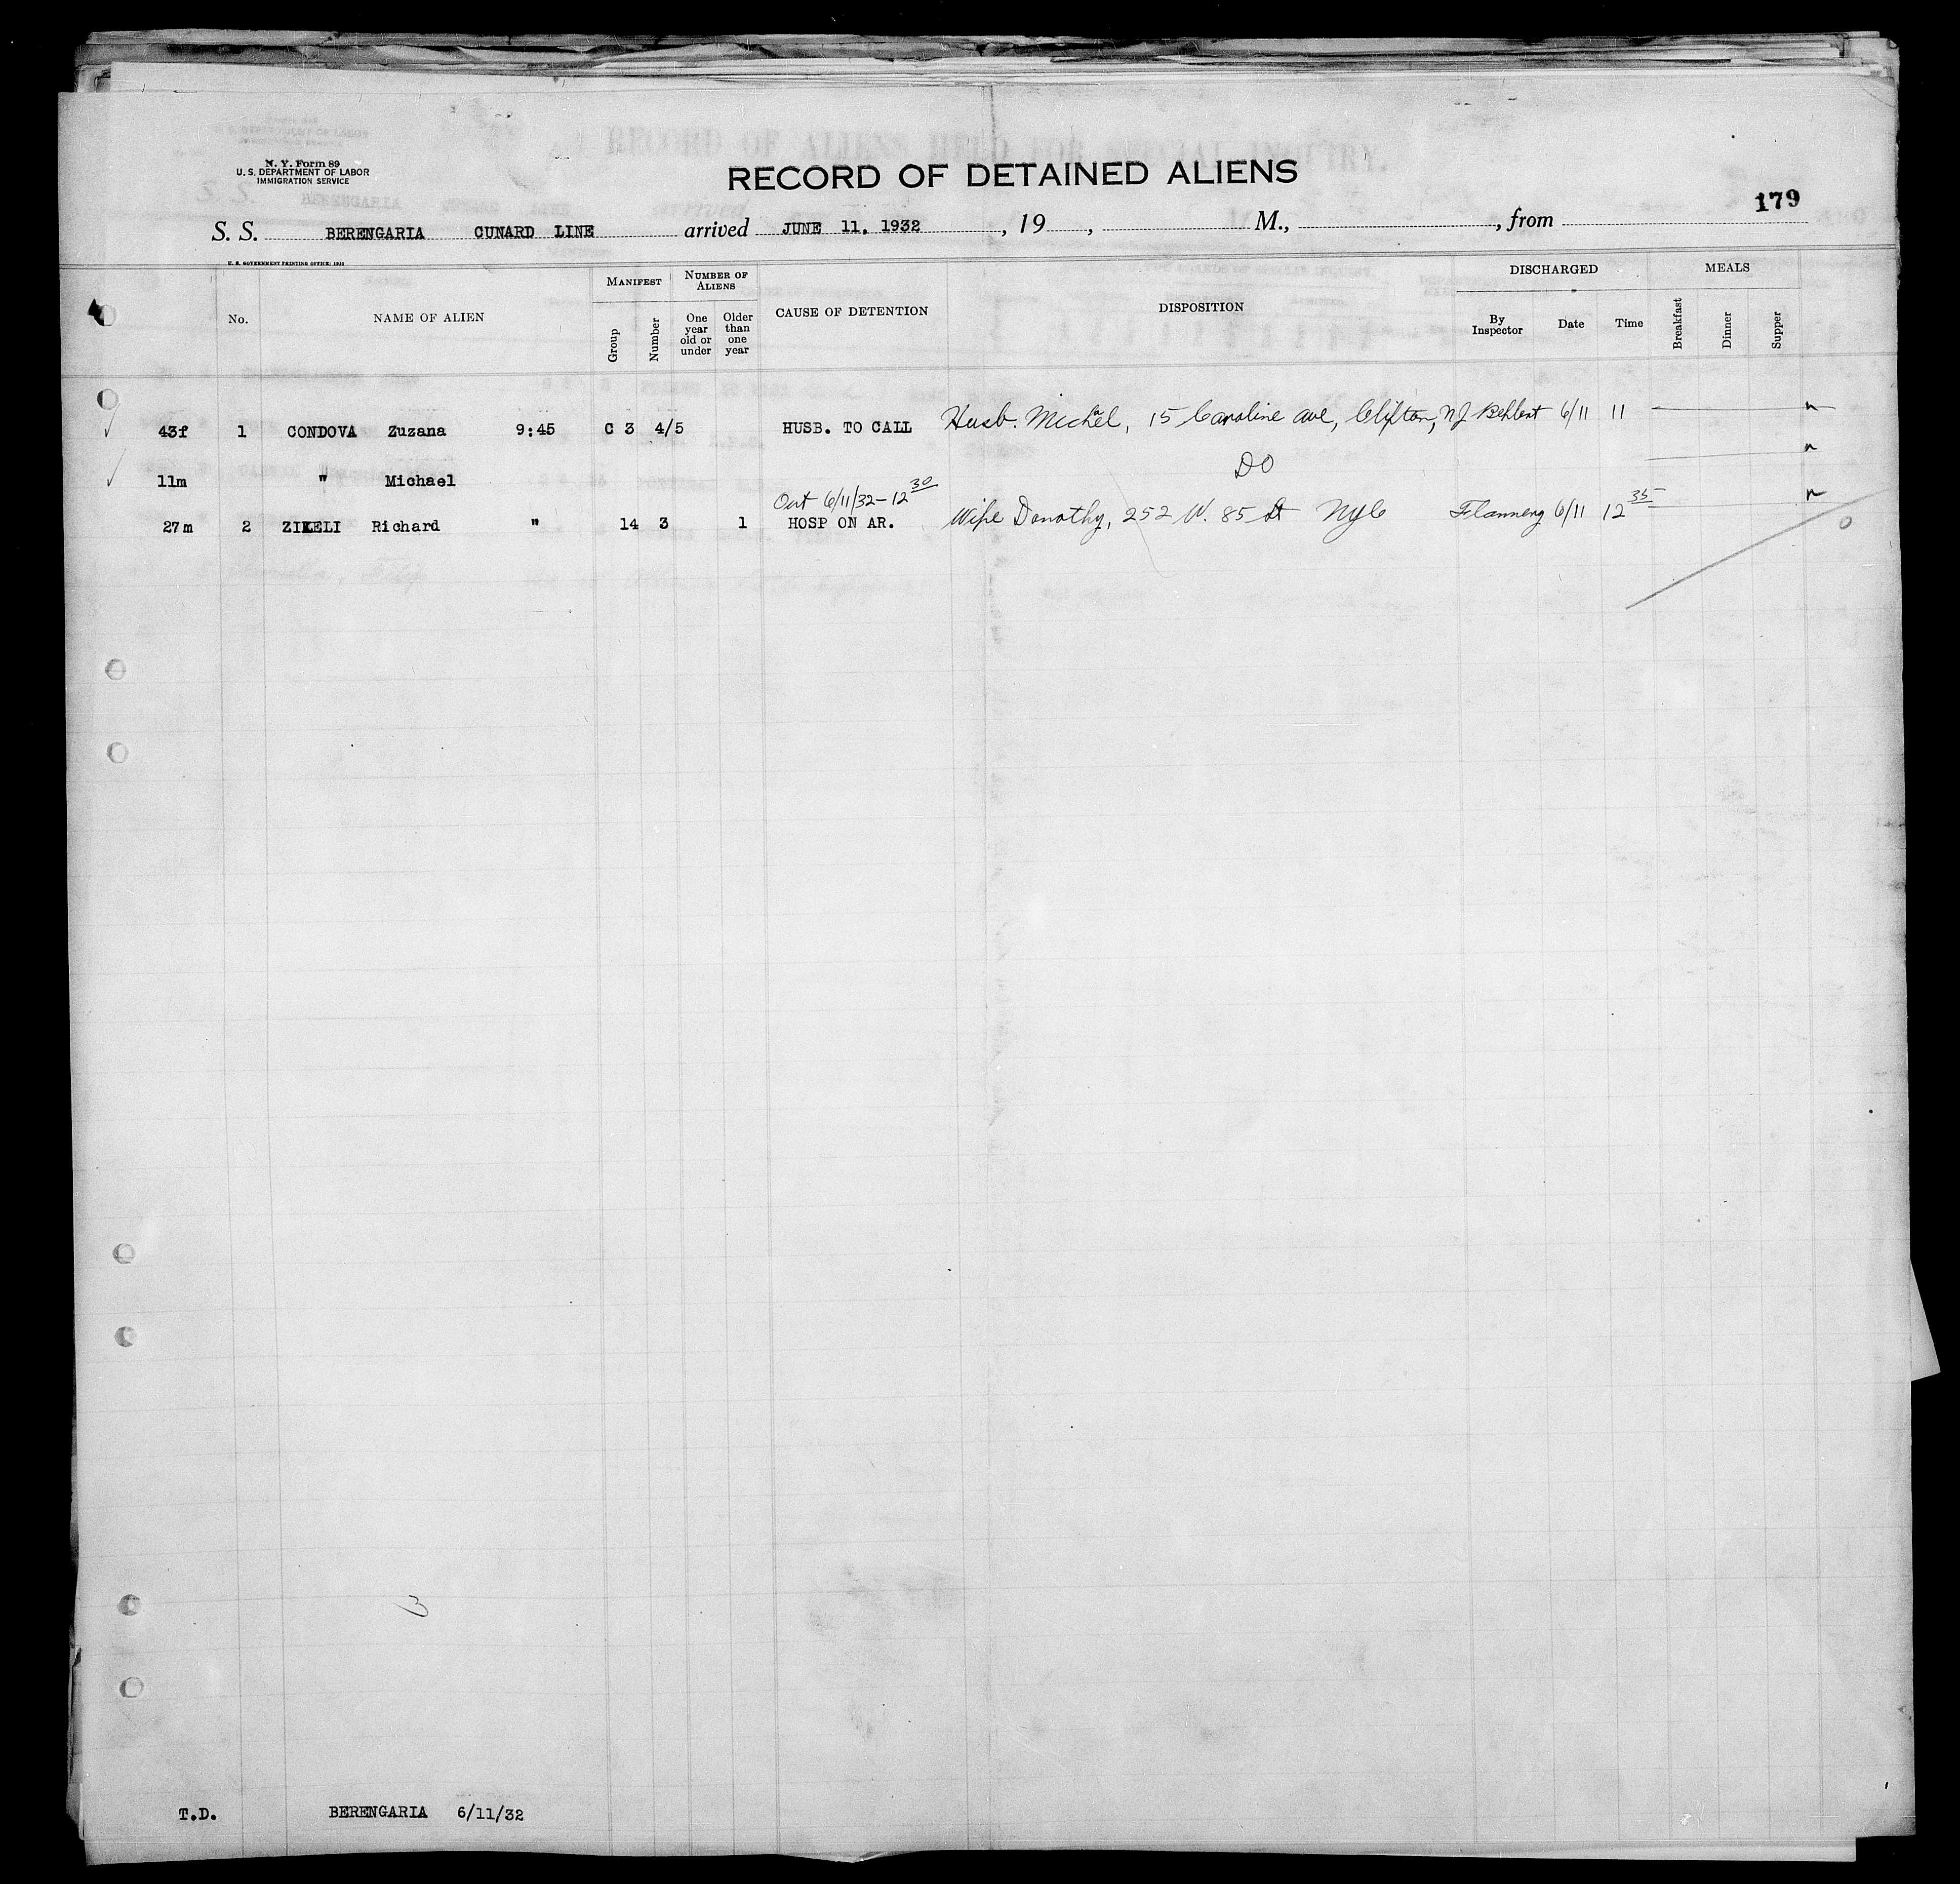 N. Y. Form 89
U. S. DEPARTMENT OF LABOR
IMMIGRATION SERVICE
RECORD OF DETAINED ALIENS
179
S. S. BERENGARIA CUNARD LINE arrived JUNE 11, 1932, 19 , M., , from
U. S. GOVERNMENT PRINTING OFFICE: 1931
No. NAME OF ALIEN MANIFEST Group Number NUMBER OF ALIENS One year old or under Older than one year CAUSE OF DETENTION DISPOSITION DISCHARGED By Inspector Date Time MEALS Breakfast Dinner Supper
43f 1 CONDOVA Zuzana 9:45 C 3 4/5 HUSB. TO CALL Husb. Michel, 15 Caroline ave, Clifton, NJ 6/11 11
11m " Michael DO
Out 6/11/32 - 12 30
27m 2 ZIKELI Richard " 14 3 1 HOSP ON AR. Wife Dorothy, 252 W. 85 St NYC Flannery 6/11 12 35
0
3
T.D. BERENGARIA 6/11/32